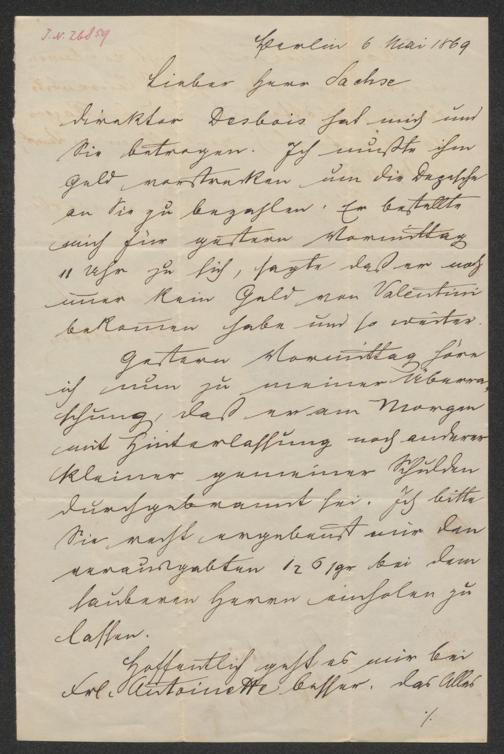 I.N. 26859
Berlin 6 Mai 1869
Lieber Herr Sachse
Direktor Desbois hat mich und
Sie betrogen. Ich mußte ihm
Geld vorstrecken um die Depesche
an Sie zu bezahlen. Er bestellte
mich für gestern Vormittag
11 Uhr zu sich, sagte daß er noch
immer kein Geld von Valentini
bekommen habe und so weiter.
Gestern Vormittag höre
ich nun zu meiner Überra-
schung, daß er am Morgen
mit Hinterlassung noch anderer
kleiner gemeiner Schulden
durchgebrannt sei. Ich bitte
Sie recht ergebenst mir den
verausgabten 12 Sgr bei dem
sauberen Herrn einholen zu
lassen.
Hoffentlich geht es mir bei
Frl. Antoinette besser. Das Alles
./.